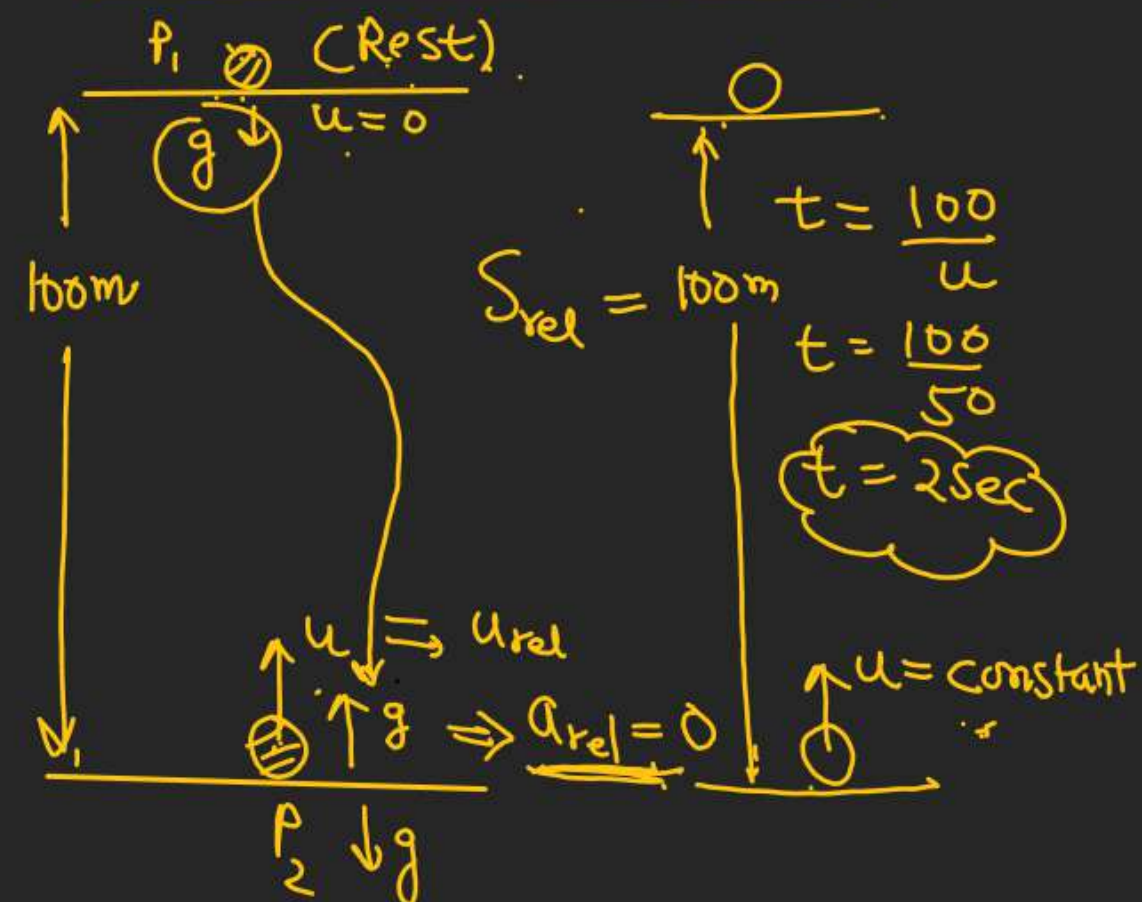 P₁ (Rest)
u = 0
g
100m
S_rel = 100m
t = 100/u
t = 100/50
t = 2sec
u ⇒ u_rel
↑g ⇒ a_rel = 0
u = constant
P₂ ↓g